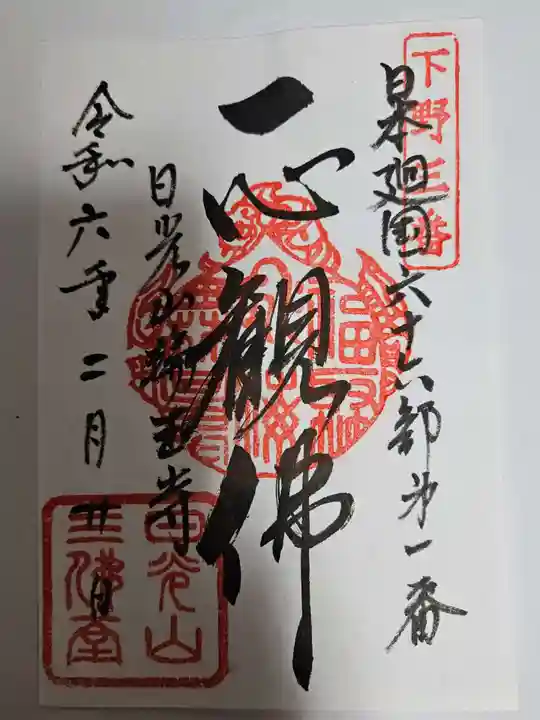 下野三番
日本廻国六十六部第一番
一心観佛
日光山輪王寺
令和六年二月廿日
日光山
三佛堂